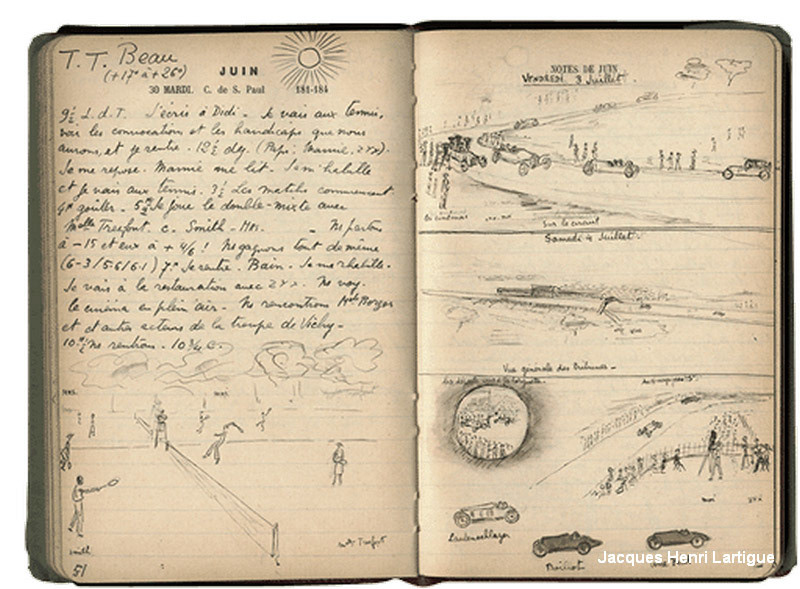 T. T. Beau
(+17° à +26°)
JUIN
30 MARDI. C. de S. Paul 181-184
9½ L. d. T. J'écris à Didi - Je vais aux tennis,
voir les convocations et les handicaps que nous
aurons, et je rentre. 12½ dej. (Papi. Mamie. ZYX).
Je me repose. Mamie me lit. Je m'habille
et je vais aux tennis. 3½ Les matchs commencent.
goûter - Je joue le double-mixte avec
Melle c. Smith - - Ne partons
à -15 et eux à + 4/6 ! Ne gagnons tout de même
(6-3/5-6/6-1) 7h Je rentre. Bain. Je me rhabille.
Je vais à la restauration avec ZYX. Ne voy.
le cinéma en plein air. Ne rencontrons
et d'autres acteurs de la troupe de Vichy -
10½ Ne rentrons. 10¾
moi
Smith
51
NOTES DE JUIN
VENDREDI 3 Juillet.
Sur le circuit
Samedi 4 Juillet.
Vue générale des tribunes -
moi
ZYX
Jacques Henri Lartigue